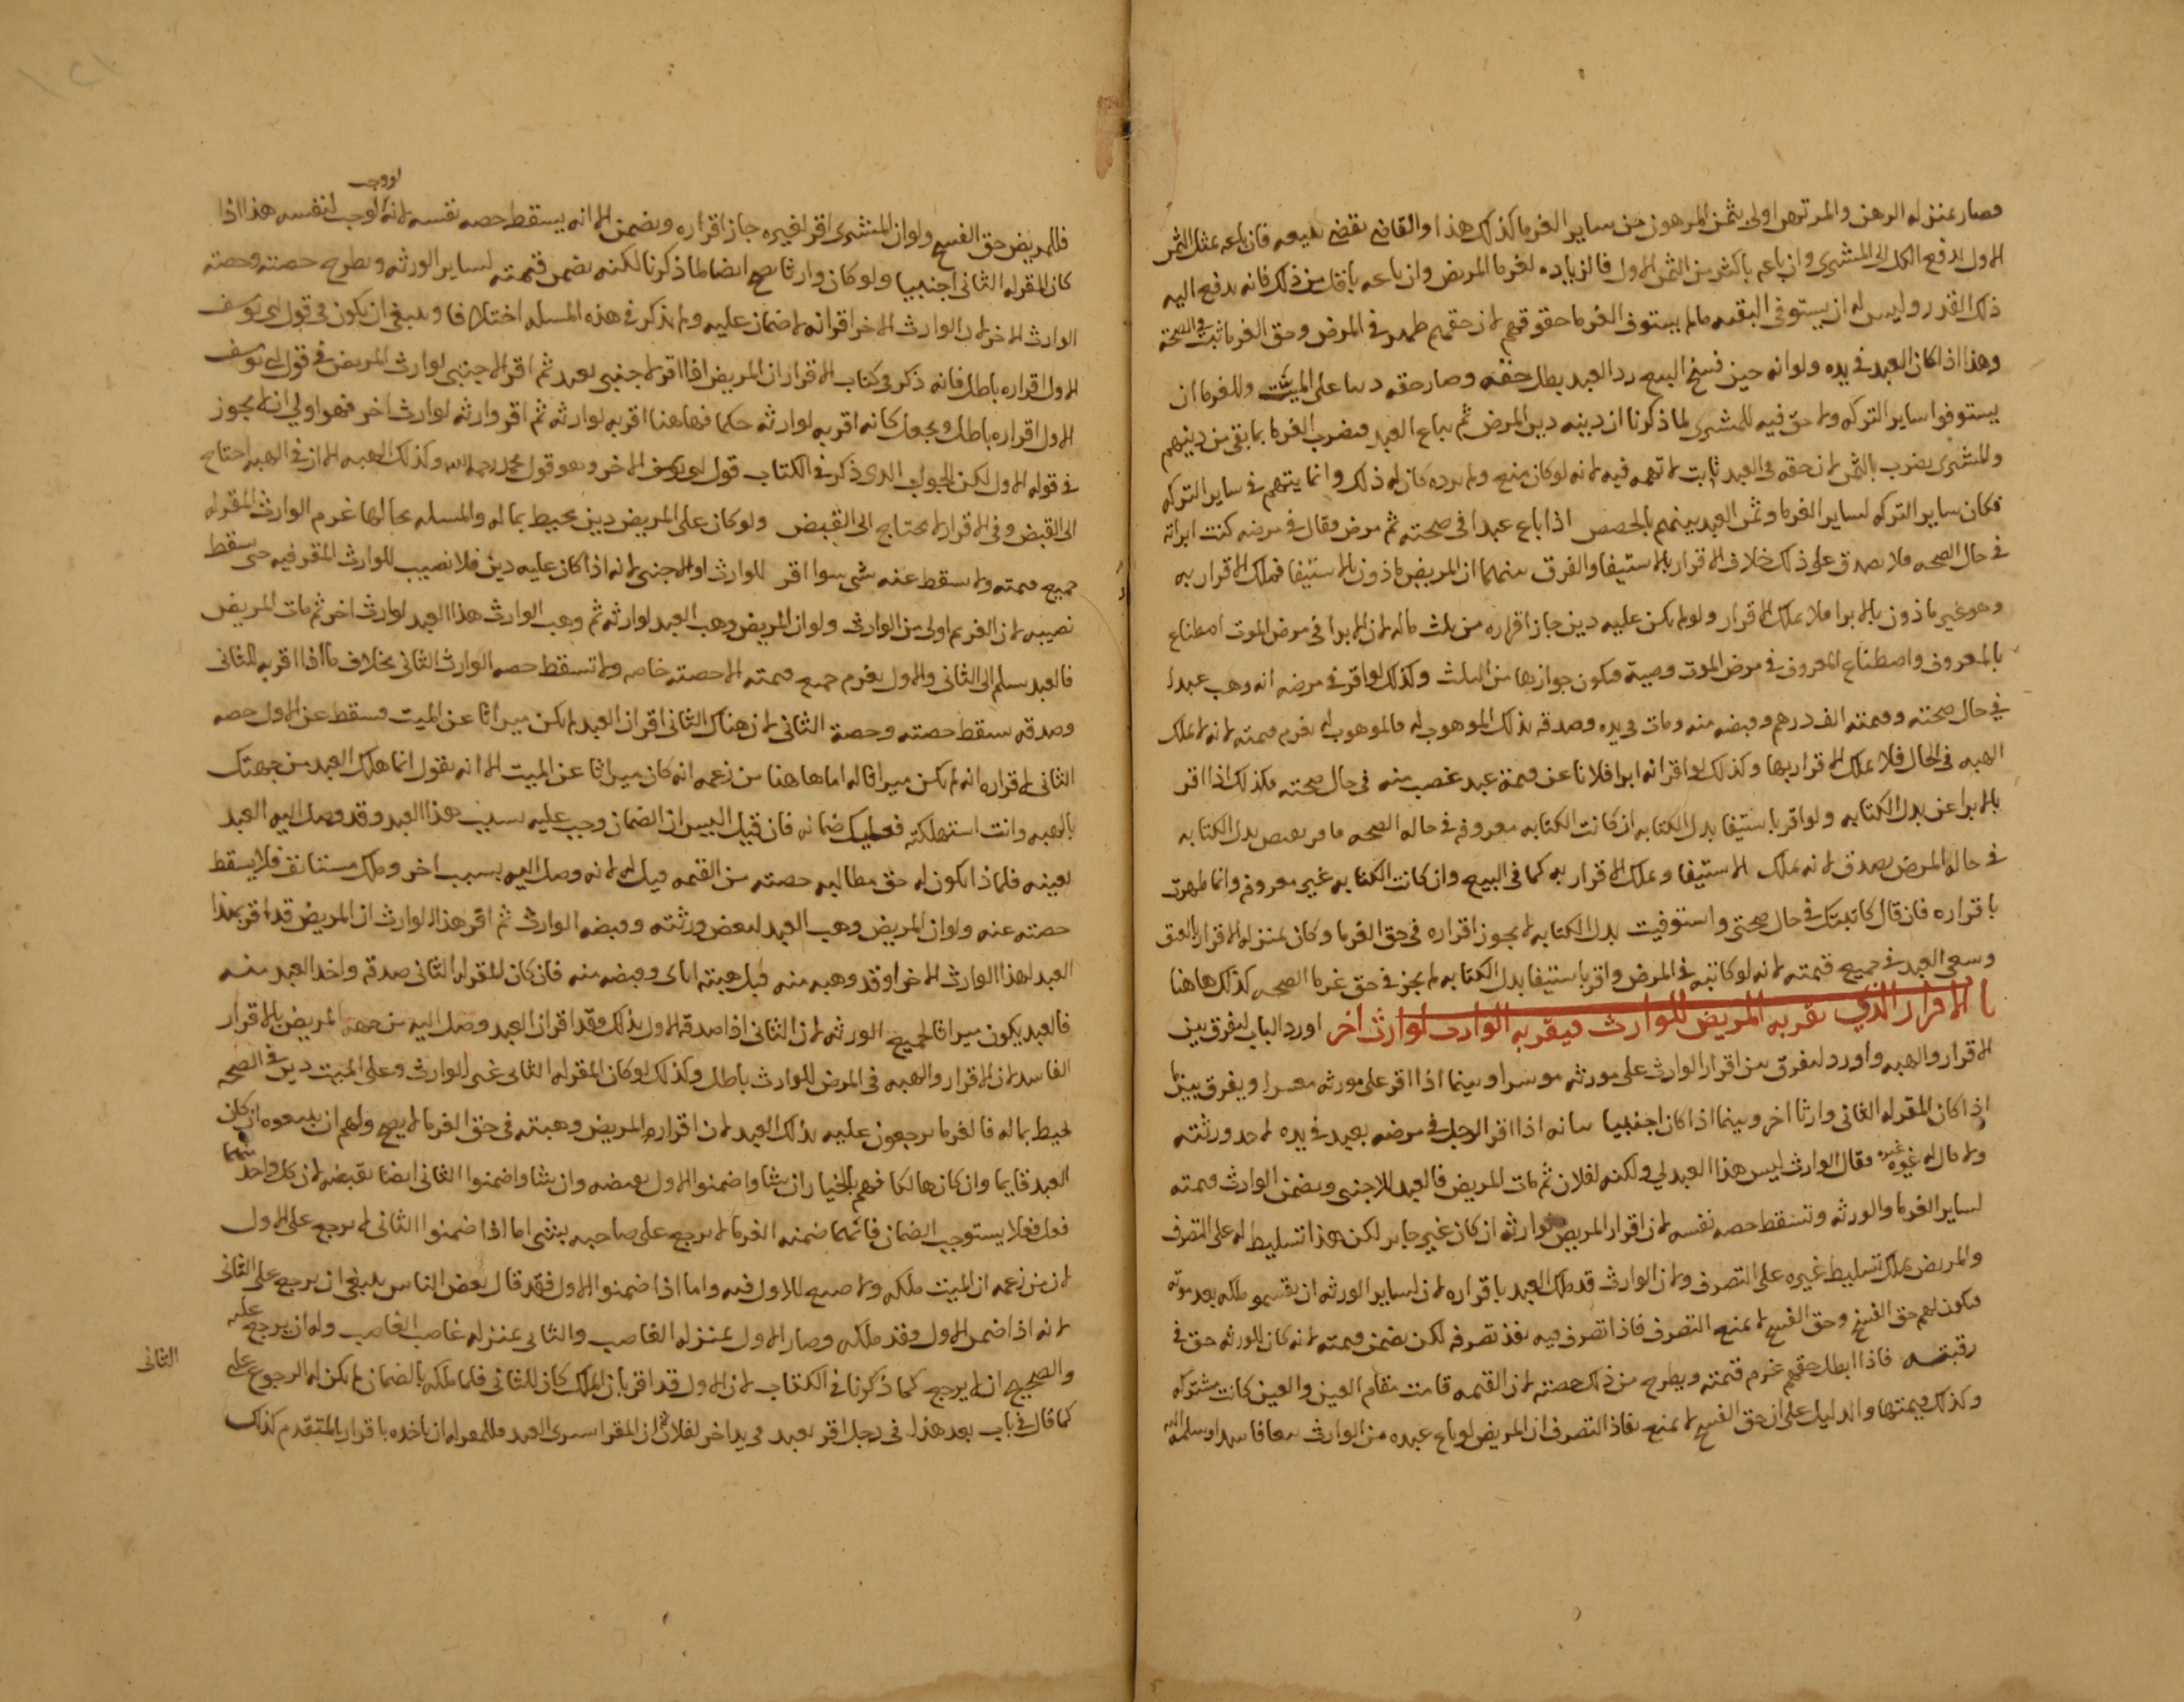 فصار بمنزله الرهن والمرتهن اولى بثمن المرهون من ساير الغرما كذلك هذا والقاضى نقض بيعه فان باعه بمثل الثمن
الاول دفع الكل الى المشترى وان باعه باكثر من الثمن الاول فالزياده لغرما المريض وان باعه باقل من ذلك فانه يدفع اليه
ذلك القدر وليس له ان يستوفى البقيه مالم يستوف الغرما حقوقهم لان حقهم ظهر فى المرض وحق الغرما ثبت فى الصحة
وهذا اذا كان العبد فى يده ولو انه حين فسخ البيع رد العبد بطل حقه وصار حقه دينا على الميت وللغرما ان
يستوفوا ساير التركه ولا حق فيه للمشترى لما ذكرنا ان دينه دين المرض ثم يباع العبد فيضرب الغرما بما بقى من دينهم
والمشترى يضرب بالثمن لان حقه فى العبد ثابت لا تهمه فيه لانه لو كان منع ولم يرده كان له ذلك وانما يتهم فى ساير التركه
فكان ساير التركه لساير الغرما وثمن العبد بينهم بالحصص اذا باع عبدا فى صحته ثم مرض فقال فى مرضه كنت ابراته
فى حال الصحه فلا يصدق على ذلك خلاف الاقرار بالاستيفا والفرق بينهما ان المريض ماذون بالاستيفا فملك الاقرار به
وهو غير ماذون بالابرا فلا يملك الاقرار ولو لم يكن عليه دين جاز اقراره من ثلث ماله لان الابرا فى مرض الموت اصطناع
بالمعروف واصطناع المعروف فى مرض الموت وصية فيكون جوازها من الثلث وكذلك لو اقر فى مرضه انه وهب عبدا
فى حال صحته وقيمته الف درهم وقبضه منه ومات فى يده وصدقه بذلك الموهوب له فالموهوب له يغرم قيمته لانه لا يملك
الهبه فى الحال فلا يملك الاقرار بها وكذلك لو اقر انه ابرا فلانا عن قيمة عبد غصب منه فى حال صحته فكذلك اذا اقر
بالابرا عن بدل الكتابه ولو اقر باستيفا بدل الكتابه ان كانت الكتابه معروفه فى حاله الصحه فاقر بقبض بدل الكتابه
فى حاله المرض يصدق لانه يملك الاستيفا ويملك الاقرار به كما فى البيع وان كانت الكتابه غير معروفه وانما ظهرت
باقراره فان قال كاتبتك فى حال صحتى واستوفيت بدل الكتابه لا يجوز اقراره فى حق الغرما وكان بمنزله الاقرار بالعتق
وسعى العبد فى جميع قيمته لانه لو كاتبه فى المرض واقر باستيفا بدل الكتابه لم يجز فى حق غرما الصحه كذلك هاهنا
با الاقرار الذي يقر به المريض للوارث فيقر به الوارث لوارث اخر اورد الباب ليفرق بين
الاقرار والهبه واورد ليفرق بين اقرار الوارث على مورثه موسرا وبينما اذا اقر على مورثه معسرا ويفرق بينما
اذا كان المقر له الثانى وارثا اخر وبينما اذا كان اجنبيا بيانه اذا اقر الرجل فى مرضه بعبد فى يده لاحد ورثته
ولا مال له غيره فقال الوارث ليس هذا العبد لي ولكنه لفلان ثم مات المريض فالعبد للاجنبى ويضمن الوارث قيمته
لساير الغرما والورثه وتسقط حصه نفسه لان اقرار المريض لوارثه ان كان غير جايز لكن هذا تسليط له على التصرف
والمريض يملك تسليط غيره على التصرف ولان الوارث قد ملك العبد باقراره لان لساير الورثه ان يقسمو ملكه بعد موته
فيكون لهم حق الفسخ وحق الفسخ لا يمنع التصرف فاذا تصرف فيه نفذ تصرفه لكن يضمن قيمته لانه كان للورثه حق فى
رقبته فاذا ابطل حقهم غرم قيمته ويطرح من ذلك حصته لان القيمه قامت مقام العين والعين كانت مشتركه
وكذلك قيمتها والدليل على ان حق الفسخ لا يمنع نفاذ التصرف ان المريض لو باع عبده من الوارث بيعا فاسدا وسلمه اليه
فللمريض حق الفسخ ولو ان المشترى اقر لغيره جاز اقراره ويضمن الا انه يسقط حصه نفسه لانه لو وجب لوجب لنفسه هذا اذا
كان المقر له الثانى اجنبيا ولو كان وارثا صح ايضا لما ذكرنا لكنه يضمن قيمته لساير الورثه ويطرح حصته وحصته
الوارث الاخر لان الوارث الاخر اقر انه لا ضمان عليه ولم يذكر فى هذه المسله اختلافا وينبغى ان يكون فى قول ابى يوسف
الاول اقراره باطل فانه ذكر فى كتاب الاقرار ان المريض اذا اقر لاجنبى بعبد ثم اقر الاجنبى لوارث المريض فى قول ابى يوسف
الاول اقراره باطل ويجعل كانه اقر به لوارثه حكما فهاهنا اقر به لوارثه ثم اقر وارثه لوارث اخر فهو اولى ان لا يجوز
فى قوله الاول لكن الجواب الذى ذكر فى الكتاب قول ابو يوسف الاخر وهو قول محمد رحمه الله وكذلك الهبه الا ان فى الهبه احتاج
الى القبض وفى الاقرار لا يحتاج الى القبض ولو كان على المريض دين يحيط بماله والمسله بحالها غرم الوارث المقر له
جميع قيمته ولا سقط عنه شى سوا اقر للوارث او الاجنبى لانه اذا كان عليه دين فلا نصيب للوارث المقر فيه حتى سقط
نصيبه لان الغريم اولى من الوارث ولو ان المريض وهب العبد لوارثه ثم وهب الوارث هذا العبد لوارث اخر ثم مات المريض
فالعبد يسلم الى الثانى والاول يغرم جميع قيمته الا حصته خاصه ولا تسقط حصه الوارث الثانى بخلاف ما اذا اقر به للثانى
وصدقه سقط حصته وحصة الثانى لان هناك الثانى اقر ان العبد لم يكن ميراثا عن الميت فسقط عن الاول حصه
الثانى لاقراره انه لم يكن ميراثا له اما هاهنا من زعمه انه كان ميراثا عن الميت الا انه يقول انما هلك العبد من جهتك
بالهبه وانت استهلكته فعليك ضمانه فان قيل اليس ان الضمان وجب عليه بسبب هذا العبد وقد وصل اليه العبد
بعينه فلماذا يكون له حق مطالبه حصته من القيمه قيل له لانه وصل اليه بسبب اخر وملك مستانف فلا يسقط
حصته عنه ولو ان المريض وهب العبد لبعض ورثته وقبضه الوارث ثم اقر هذا الوارث ان المريض قد اقر بهذا
العبد لهذا الوارث الاخر او قد وهبه منه قبل هبته اياى وقبضه منه فان كان المقر له الثانى صدقه واخذ العبد منه
فالعبد يكون ميراثا لجميع الورثه لان الثانى اذا صدقه الاول بذلك فقد اقر ان العبد وصل اليه من جهه المريض بالاقرار
الفاسد لان الاقرار والهبه فى المرض للوارث باطل وكذلك لو كان المقر له الثانى غير الوارث وعلى الميت دين فى الصحه
يحيط بماله فالغرما يرجعون عليه بذلك العبد لان اقراره المريض وهبته فى حق الغرما لا يصح ولهم ان يبيعوه ان كان
العبد قايما وان كان هالكا فهم بالخيار ان شاوا ضمنوا الاول بقبضه وان شاوا ضمنوا الثانى ايضا بقبضه لان كل واحد منهما
فعل فعلا يستوجب الضمان فايهما ضمنه الغرما لا يرجع على صاحبه بشى اما اذا ضمنوا الثانى لا يرجع على الاول
لان من زعمه ان الميت ملكه ولا صنع للاول فيه واما اذا ضمنوا الاول فقد قال بعض الناس ينبغى ان يرجع على الثانى
لانه اذا ضمن الاول وقد ملكه وصار الاول بمنزله الغاصب والثانى بمنزله غاصب الغاصب وله ان يرجع عليه
والصحيح ان لا يرجع كما ذكرنا فى الكتاب لان الاول قد اقر بان الملك كان للثانى فلما ملكه بالضمان لم يكن له الرجوع على
كما قال فى باب بعد هذا فى رجل اقر بعبد فى يد اخر لفلان ثم ان المقر اشترى العبد فللمقر له ان ياخذه باقراره المتقدم كذلك
الثانى